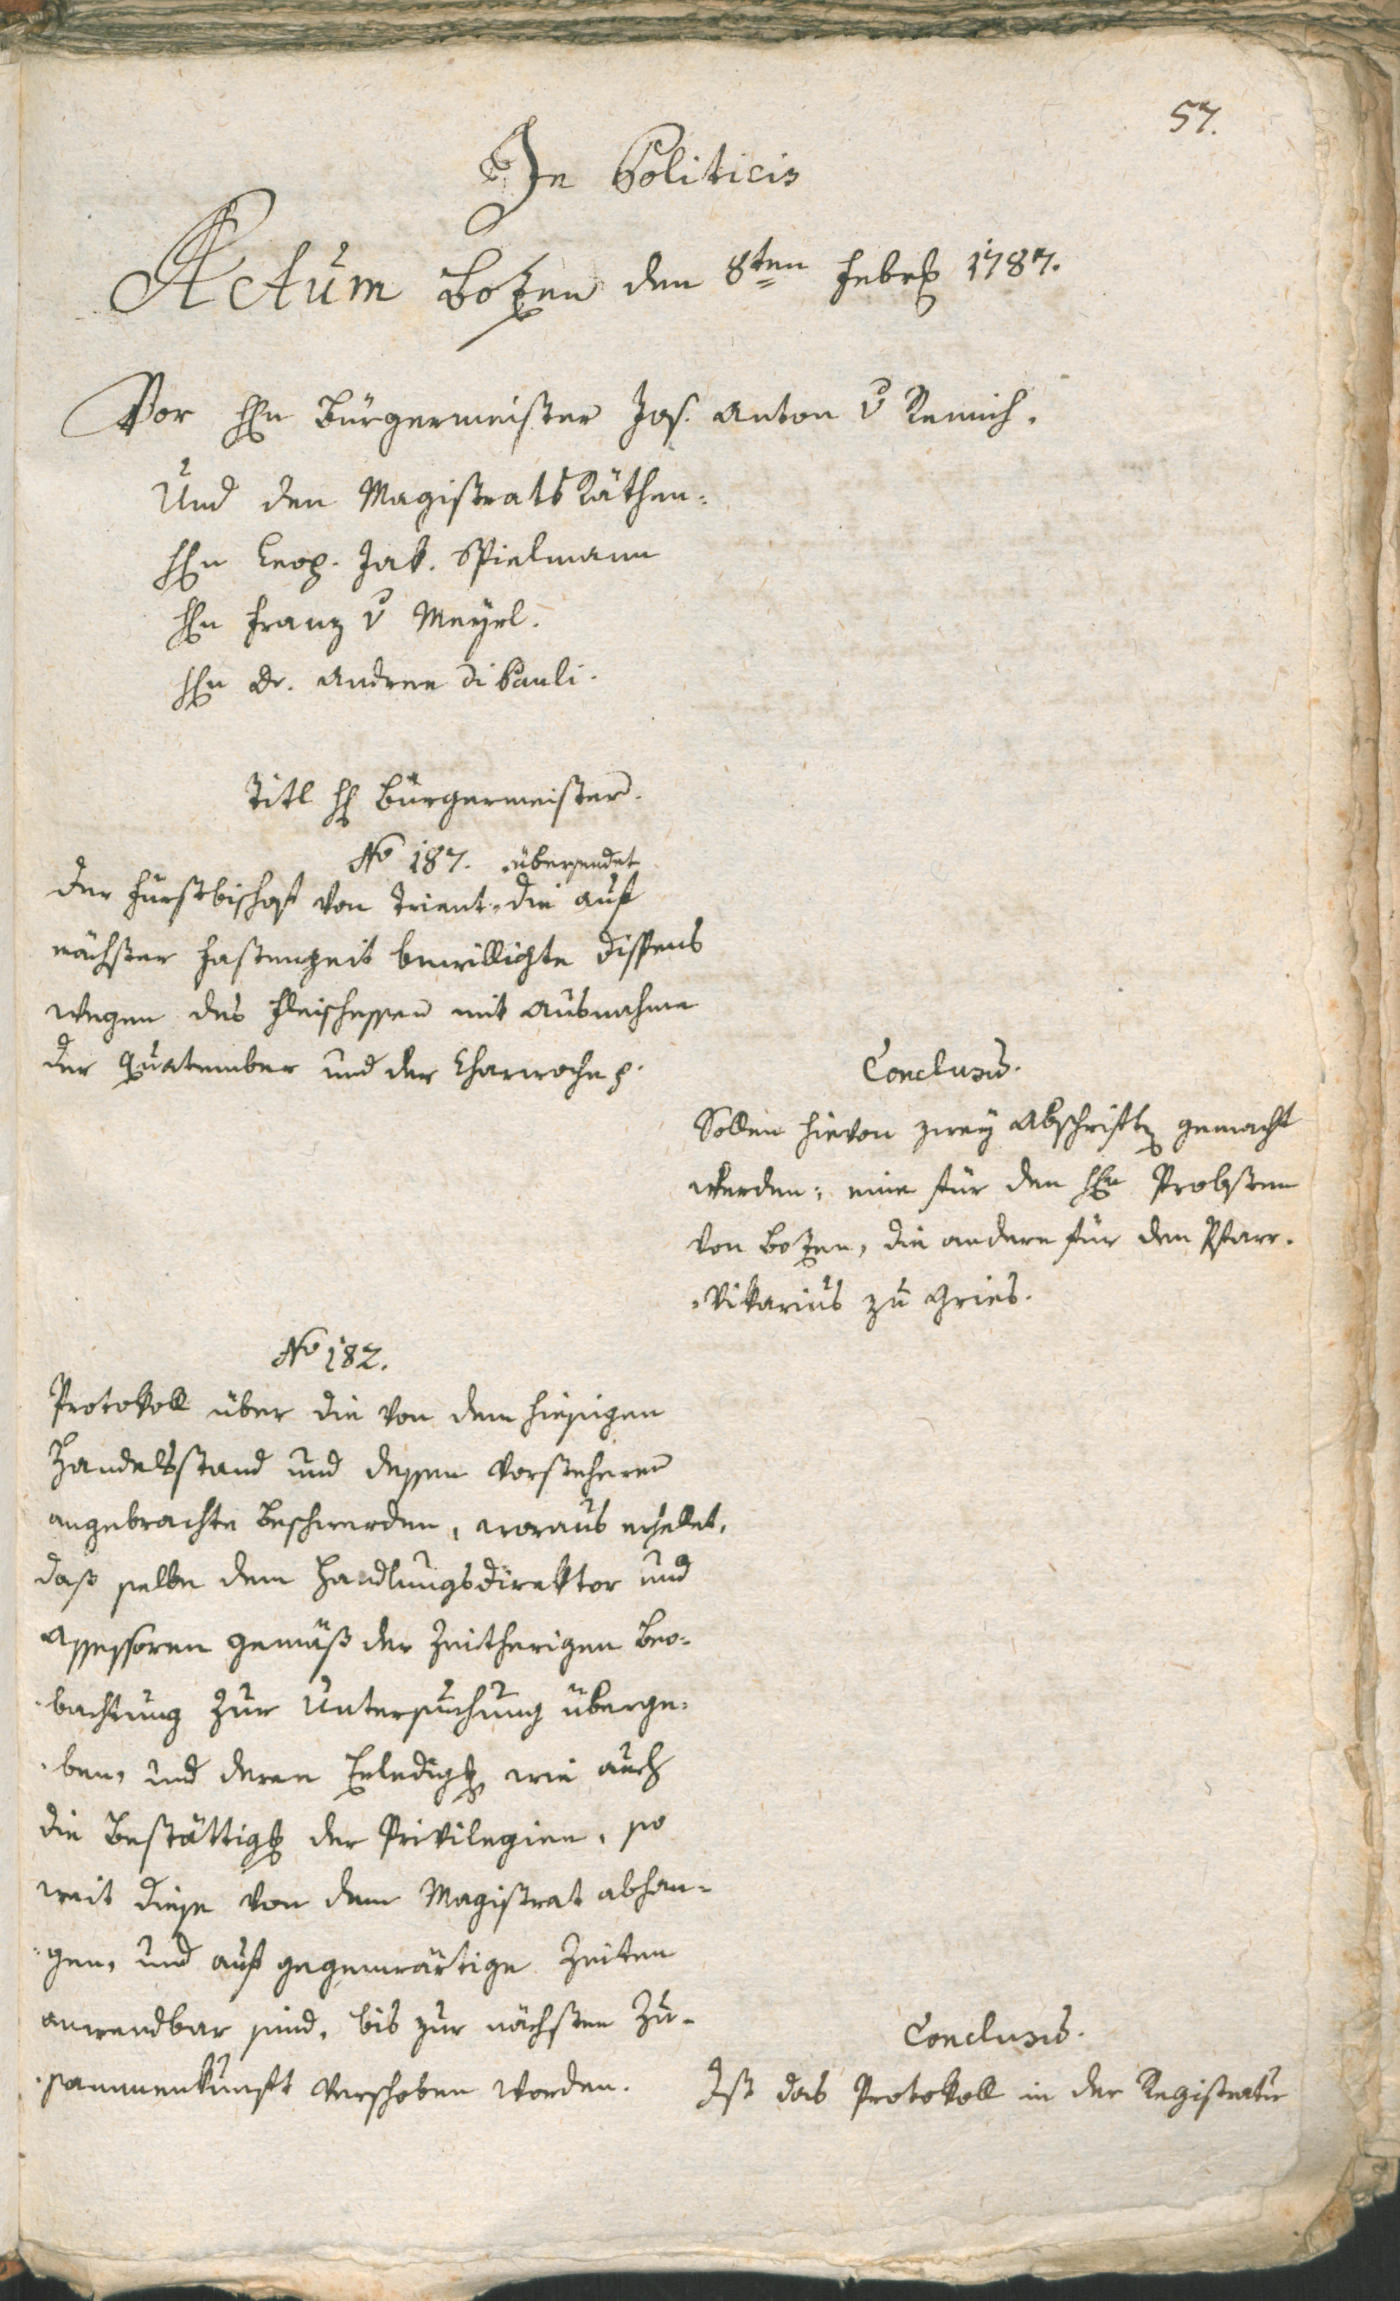 57.
In Politicis
Actum Bozen den 8ten Febr 1787.
Vor Hn Bürgermeister Jos. Anton v Remich.
Und den Magistrats Räthen:
Hn Leop. Jak. Spielmann
Hn Franz v Mayrl.
Hn Dr. Andree di Pauli.
Titl H Bürgermeister.
No 187. übersendet
Der Fürstbischof von Trient die auf
nächster Fastenzeit bewilligte Dispens
wegen des Fleischessen mit Ausnahme
der Quatember und der Charwoche p.
Conclusis.
Sollen hievon zwey Abschriften gemacht
werden: eine für den Hn Probsten
von Bozen, die andere für den Pfarr-
-Vikarius zu Gries.
No 182.
Protokoll über die von dem hiesigen
Handelsstand und dessen Vorsteheren
angebrachte Beschwerden, woraus erhellet,
daß selbe dem Handlungsdirektor und
Assessoren gemäß der zeitherigen Beo-
-bachtung zur Untersuchung überge-
-ben, und deren Erledigg wie auch
die Bestättigg der Privilegien, so
weit diese von dem Magistrat abhan-
-gen, und auf gegenwärtige Zeiten
anwendbar sind, bis zur nächsten Zu-
-sammenkunft verschoben worden.
Conclusis.
Ist das Protokoll in der Registratur